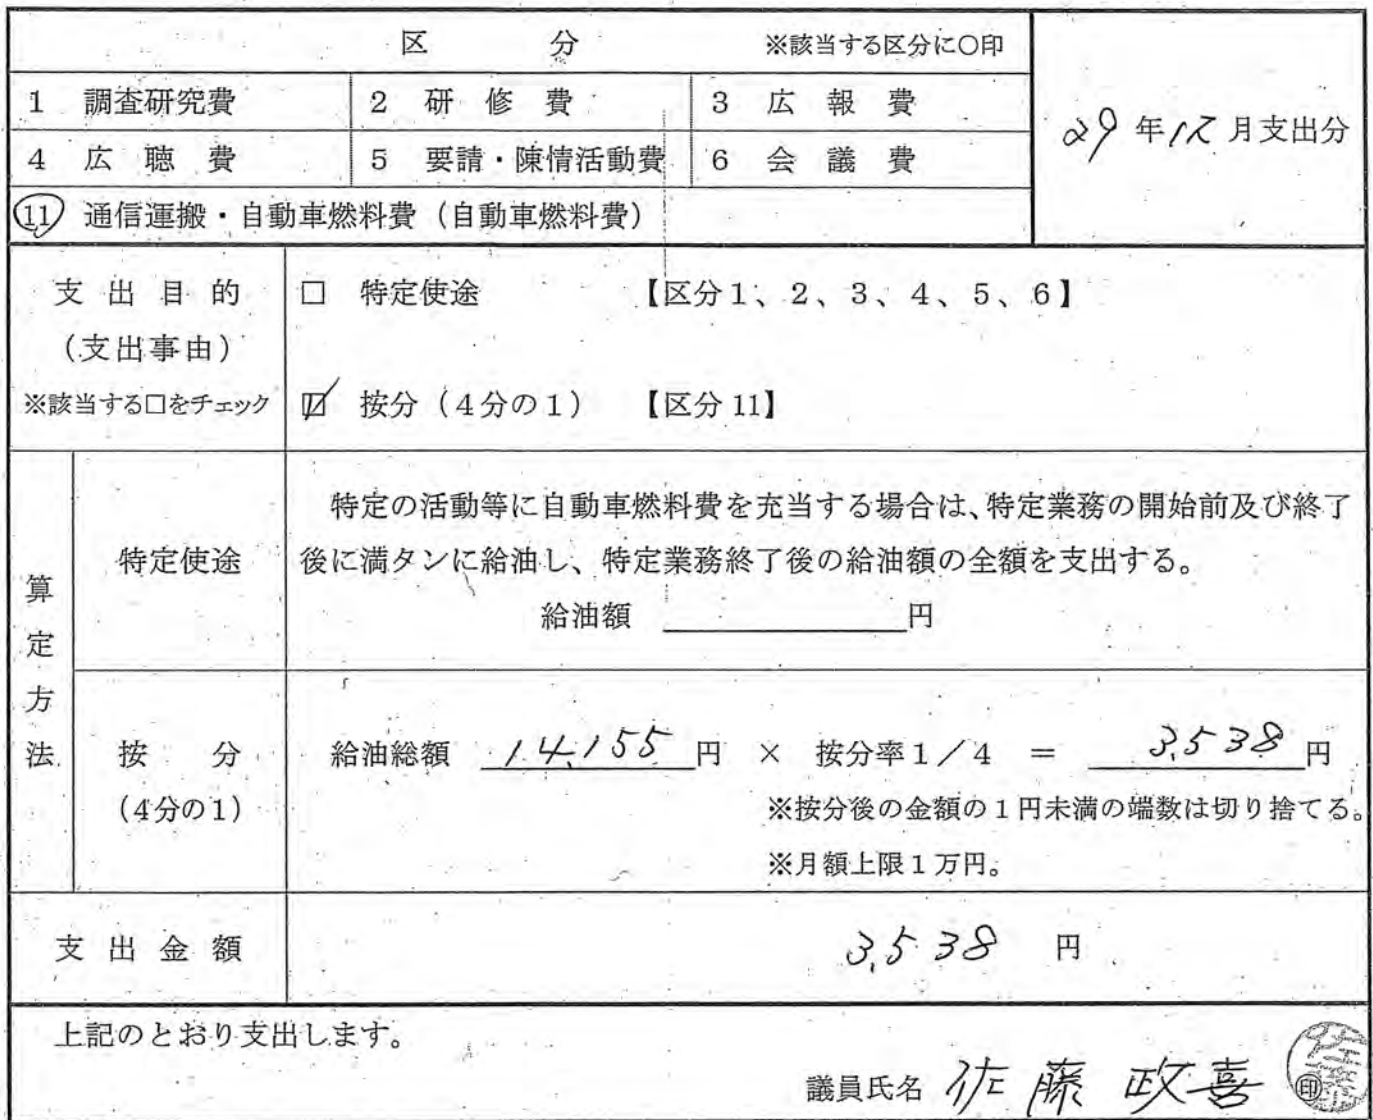 区 分 ※該当する区分に○印
1 調査研究費 2 研修費 3 広報費
29年12月支出分
4 広聴費 5 要請・陳情活動費 6 会議費
⑪ 通信運搬・自動車燃料費（自動車燃料費）
支出目的
（支出事由）
※該当する□をチェック
□ 特定使途 【区分1、2、3、4、5、6】
☑ 按分（4分の1） 【区分11】
算定方法
特定使途
特定の活動等に自動車燃料費を充当する場合は、特定業務の開始前及び終了
後に満タンに給油し、特定業務終了後の給油額の全額を支出する。
給油額 円
按分
（4分の1）
給油総額 14,155円 × 按分率1／4 ＝ 3,538円
※按分後の金額の1円未満の端数は切り捨てる。
※月額上限1万円。
支出金額 3,538 円
上記のとおり支出します。
議員氏名 佐藤 政喜 ㊞
佐藤